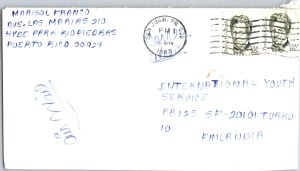 MARISOL FRANCO
AVE. LAS MARIAS 210
HYDE PARK RIO PIEDRAS
PUERTO RICO 00927
SAN JUAN, PR
PM
NOV
INTERNATIONAL YOUTH
SERVICE
PB125 SF-20101 TURKU
10
FINLANDIA